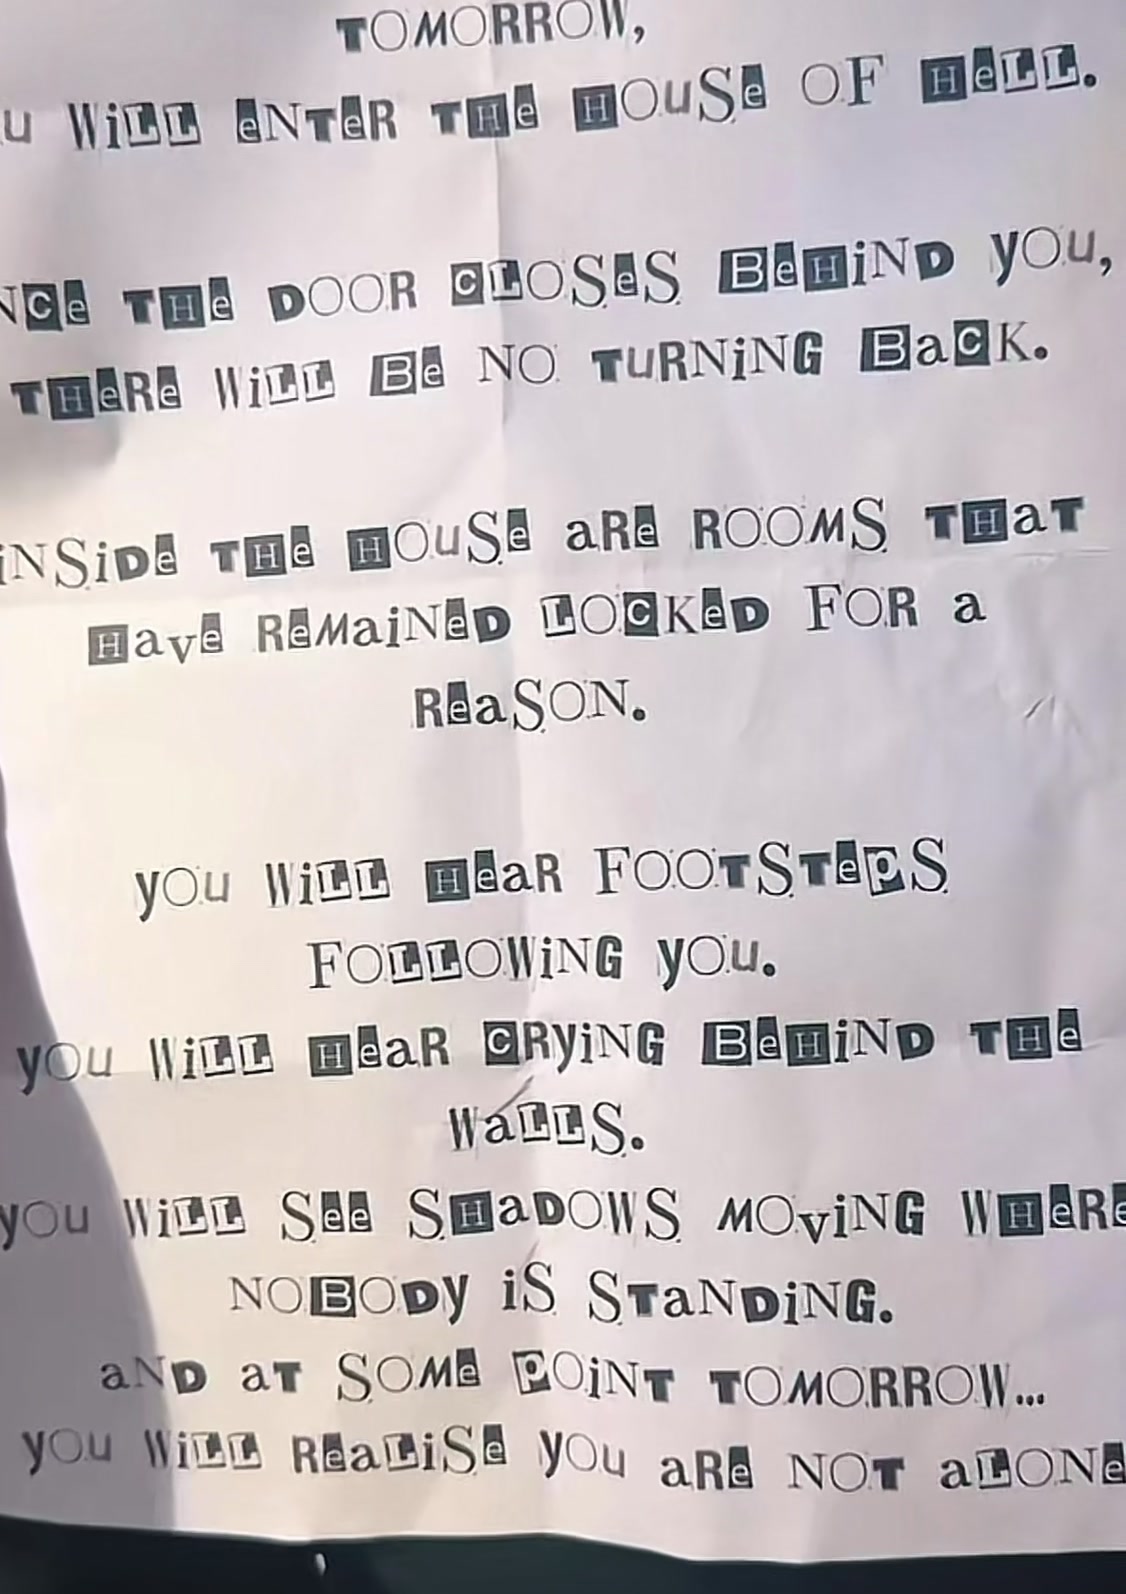 TOMORROW,
u WiLL eNTeR THe HOuSe OF HeLL.
NCe THe DOOR CLOSeS BeHiND yOu,
THeRe WiLL Be NO TuRNiNG BaCK.
iNSiDe THe HOuSe aRe ROOMS THaT
Have ReMaiNeD LOCKeD FOR a
ReaSON.
yOu WiLL HeaR FOOTSTePS
FOLLOWiNG yOu.
yOu WiLL HeaR CRyiNG BeHiND THe
WaLLS.
yOu WiLL See SHaDOWS MOviNG WHeRe
NOBODy iS STaNDiNG.
aND aT SOMe POiNT TOMORROW...
yOu WiLL ReaLiSe yOu aRe NOT aLONe